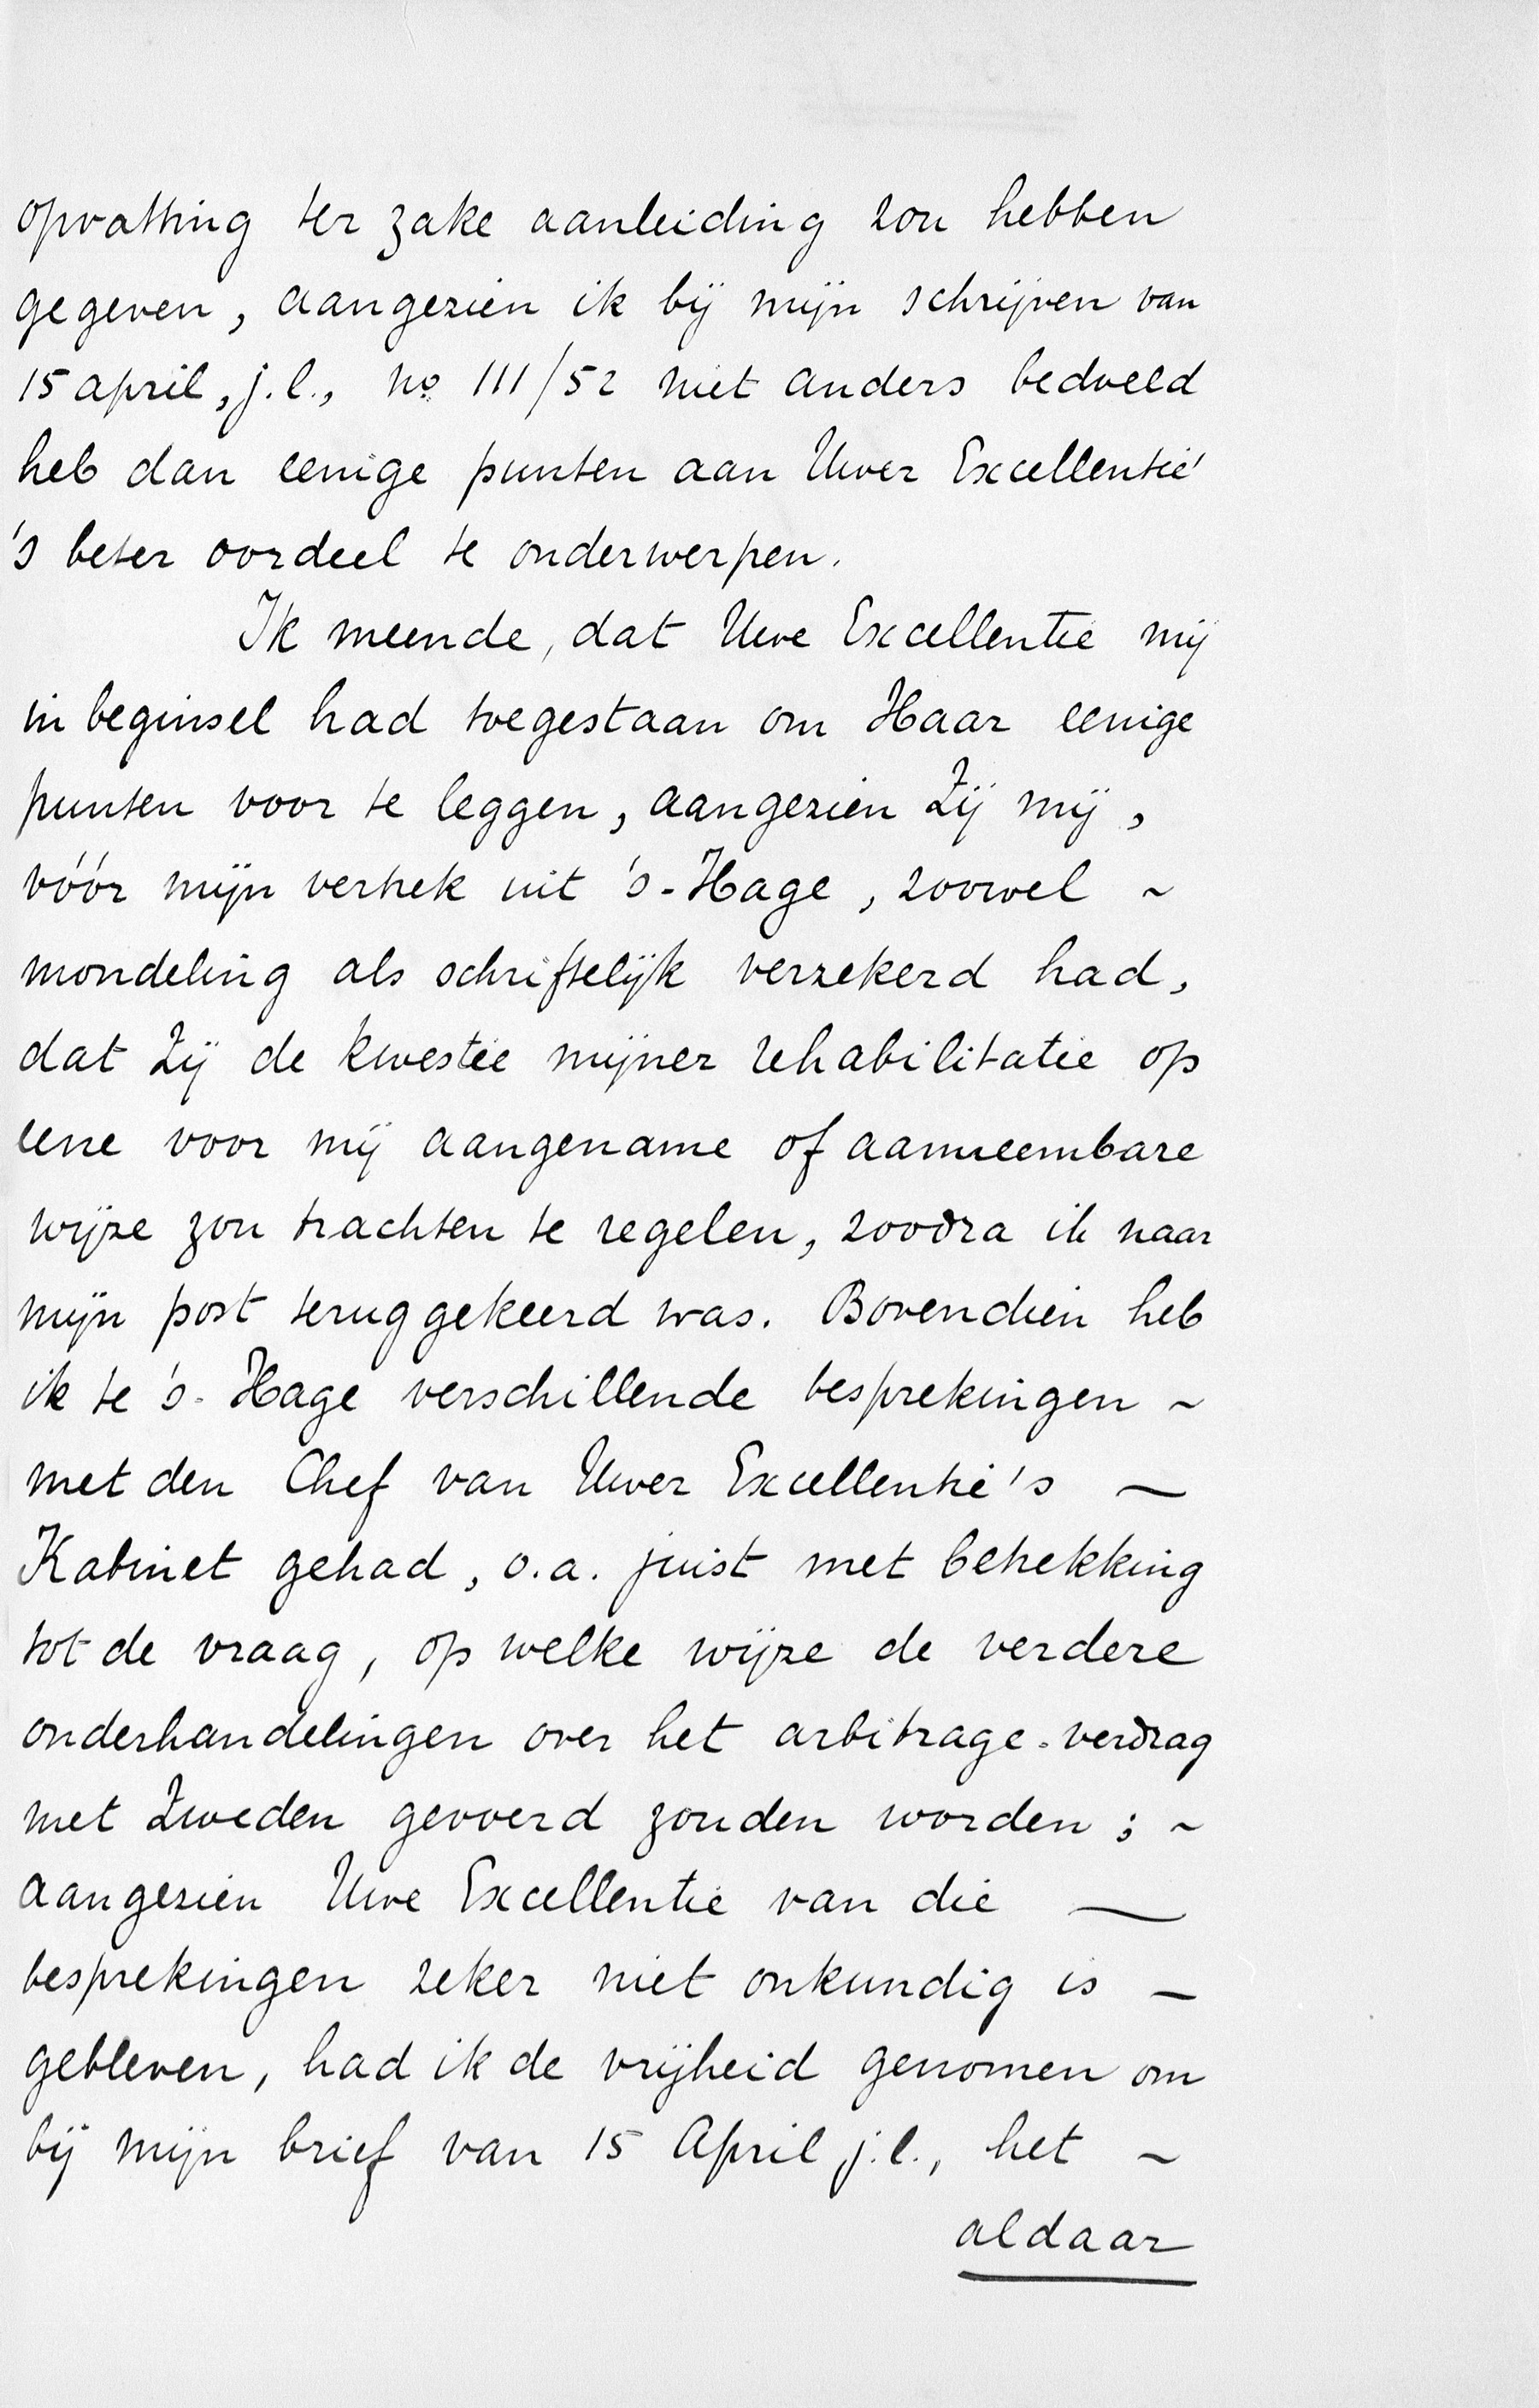 opvatting ter zake aanleiding zou hebben
gegeven, aangezien ik bij mijn schrijven van
15 april, j.l., No 111/52 niet anders bedoeld
heb dan eenige punten aan Uwer Excellentie'
's beter oordeel te onderwerpen.
Ik meende, dat Uwe Excellentie mij
in beginsel had toegestaan om Haar eenige
punten voor te leggen, aangezien Zij mij,
vóór mijn vertrek uit 's-Hage, zoowel ~
mondeling als schriftelijk verzekerd had,
dat Zij de kwestie mijner rehabilitatie op
eene voor mij aangename of aanneembare
wijze zou trachten te regelen, zoodra ik naar
mijn post teruggekeerd was. Bovendien heb
ik te 's-Hage verschillende besprekingen ~
met den Chef van Uwer Excellentie's —
Kabinet gehad, o.a. juist met betrekking
tot de vraag, op welke wijze de verdere
onderhandelingen over het arbitrage-verdrag
met Zweden gevoerd zouden worden; ~
aangezien Uwe Excellentie van die —
besprekingen zeker niet onkundig is —
gebleven, had ik de vrijheid genomen om
bij mijn brief van 15 April j.l., het ~
aldaar